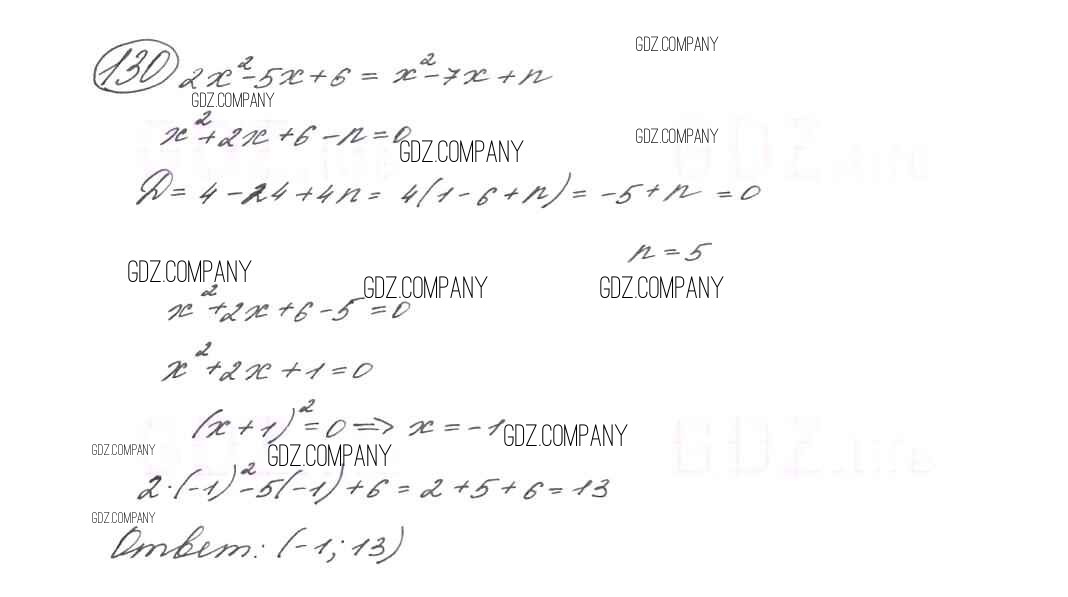 GDZ.COMPANY
130 2x²-5x+6 = x²-7x+n
GDZ.COMPANY
x²+2x+6-n=0
GDZ.COMPANY
GDZ.COMPANY
D = 4-24+4n = 4(1-6+n) = -5+n = 0
n = 5
GDZ.COMPANY
GDZ.COMPANY
GDZ.COMPANY
x²+2x+6-5=0
x²+2x+1=0
(x+1)²=0 => x=-1
GDZ.COMPANY
GDZ.COMPANY
GDZ.COMPANY
2·(-1)²-5(-1)+6 = 2+5+6=13
GDZ.COMPANY
Ответ: (-1; 13)